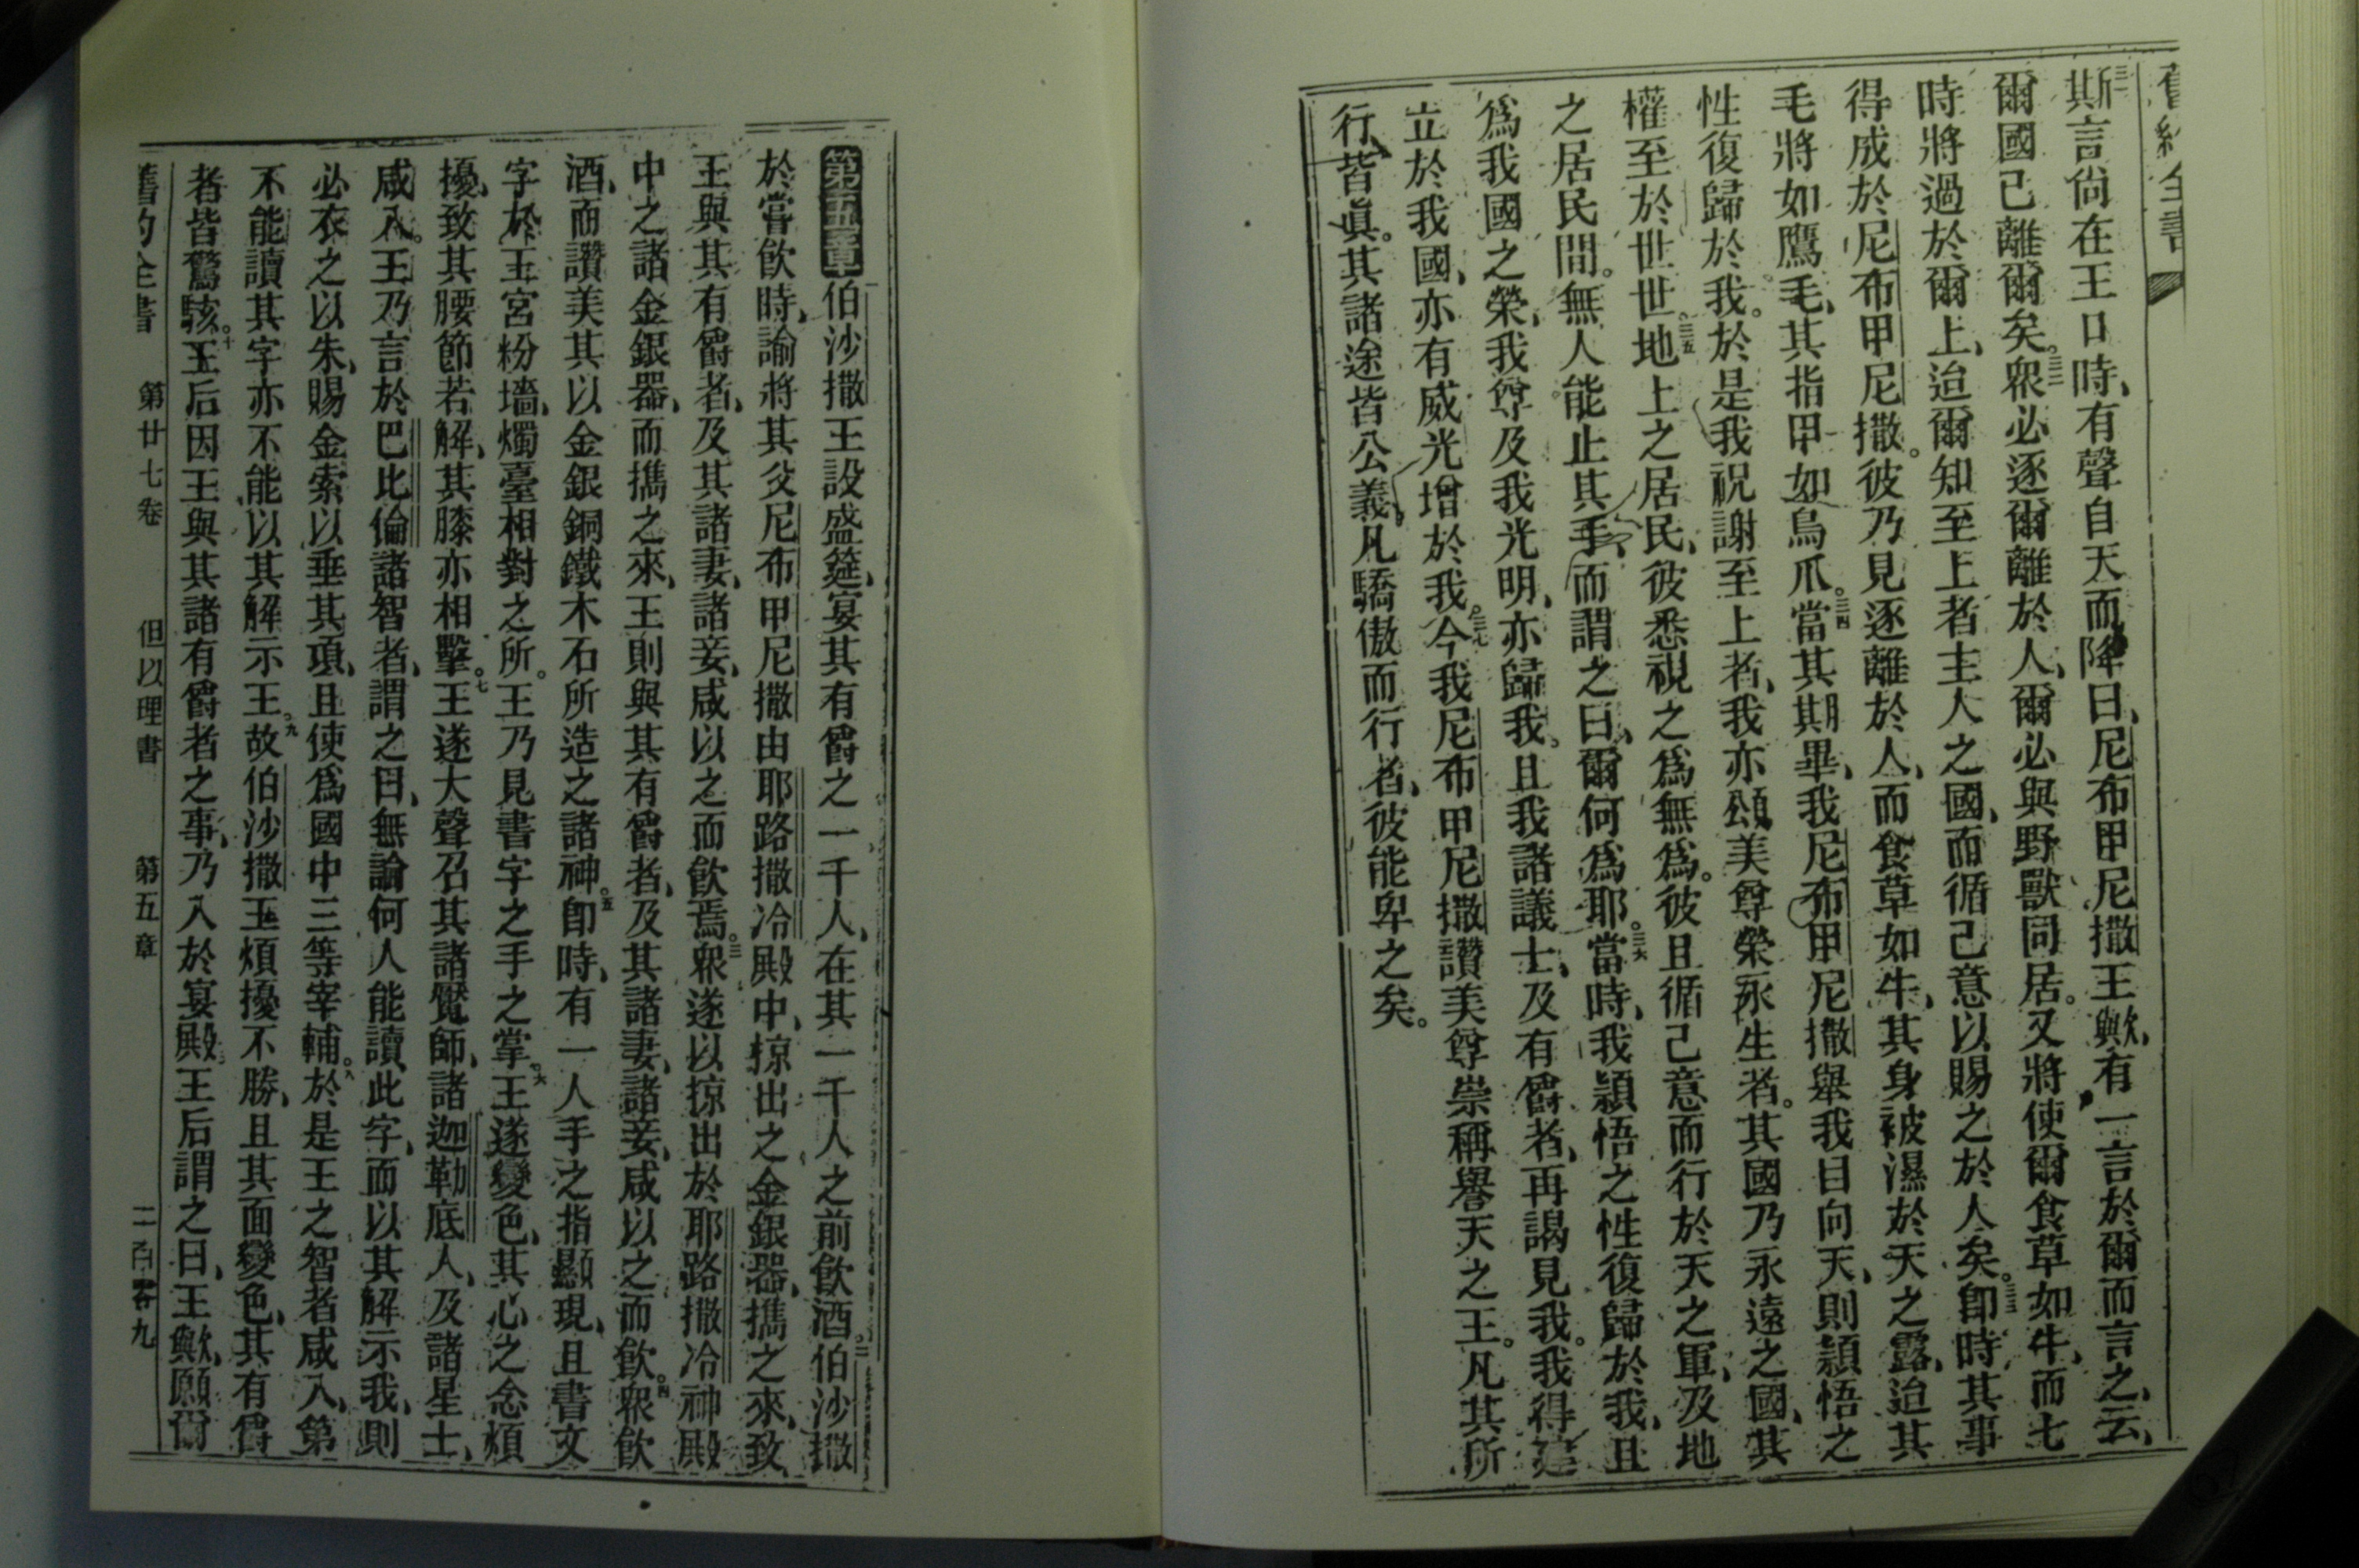 舊約全書
斯言尙在王口時、有聲自天而降曰、尼布甲尼撒王歟、有一言於爾而言之、云、
爾國已離爾矣。三二衆必逐爾離於人、爾必與野獸同居。又將使爾食草如牛、而七
時將過於爾上、迨爾知至上者主人之國、而循己意以賜之於人矣。三三卽時、其事
得成於尼布甲尼撒。彼乃見逐離於人、而食草如牛、其身被濕於天之露、迨其
毛將如鷹毛、其指甲如鳥爪。三四當其期畢、我尼布甲尼撒舉我目向天、則頴悟之
性復歸於我。於是我祝謝至上者、我亦頌美尊榮永生者。其國乃永遠之國、其
權至於世世。三五地上之居民、彼悉視之爲無爲。彼且循己意而行於天之軍、及地
之居民間。無人能止其手、而謂之曰、爾何爲耶。三六當時、我頴悟之性復歸於我、且
爲我國之榮、我尊及我光明、亦歸我。且我諸議士、及有爵者、再謁見我。我得建
立於我國、亦有威光增於我。三七今我尼布甲尼撒讚美尊崇稱譽天之王。凡其所
行、皆眞。其諸途皆公義。凡驕傲而行者、彼能卑之矣。
第五章 伯沙撒王設盛筵、宴其有爵之一千人、在其一千人之前飲酒。二伯沙撒
於嘗飲時、諭將其父尼布甲尼撒由耶路撒冷殿中、掠出之金銀器、攜之來、致
王與其有爵者、及其諸妻、諸妾、咸以之而飲焉。三衆遂以掠出於耶路撒冷神殿
中之諸金銀器、而攜之來、王則與其有爵者、及其諸妻、諸妾、咸以之而飲。四衆飲
酒、而讚美其以金銀銅鐵木石所造之諸神。五卽時、有一人手之指顯現、且書文
字於王宮粉墻、燭臺相對之所。王乃見書字之手之掌。六王遂變色、其心之念煩
擾、致其腰節若解、其膝亦相擊。七王遂大聲召其諸覡師、諸迦勒底人、及諸星士、
咸入。王乃言於巴比倫諸智者、謂之曰、無論何人能讀此字、而以其解示我、則
必衣之以朱、賜金索以垂其項、且使爲國中三等宰輔。八於是王之智者咸入、第
不能讀其字亦不能以其解示王。九故伯沙撒王煩擾不勝、且其面變色、其有爵
者皆驚駭。十王后因王與其諸有爵者之事、乃入於宴殿。王后謂之曰、王歟、願爾
舊約全書 第廿七卷 但以理書 第五章 二百零九